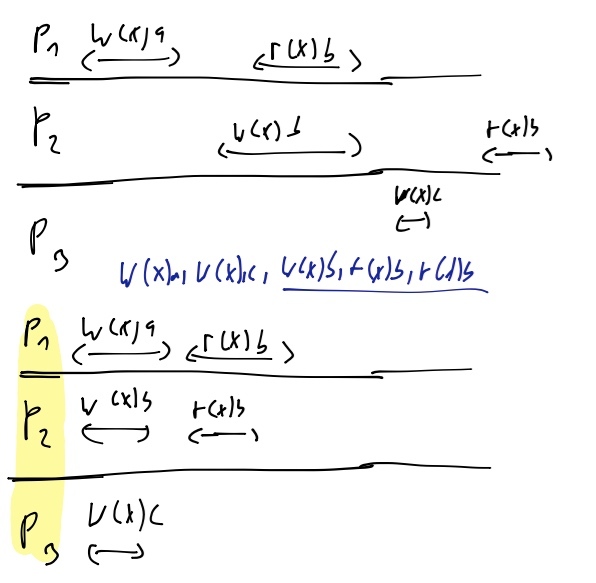 P1 W(x)a r(x)b
P2 W(x)b r(x)b
W(x)c
P3
W(x)a, W(x)c, W(x)b, r(x)b, r(x)b
P1 W(x)a r(x)b
P2 W(x)b r(x)b
P3 W(x)c